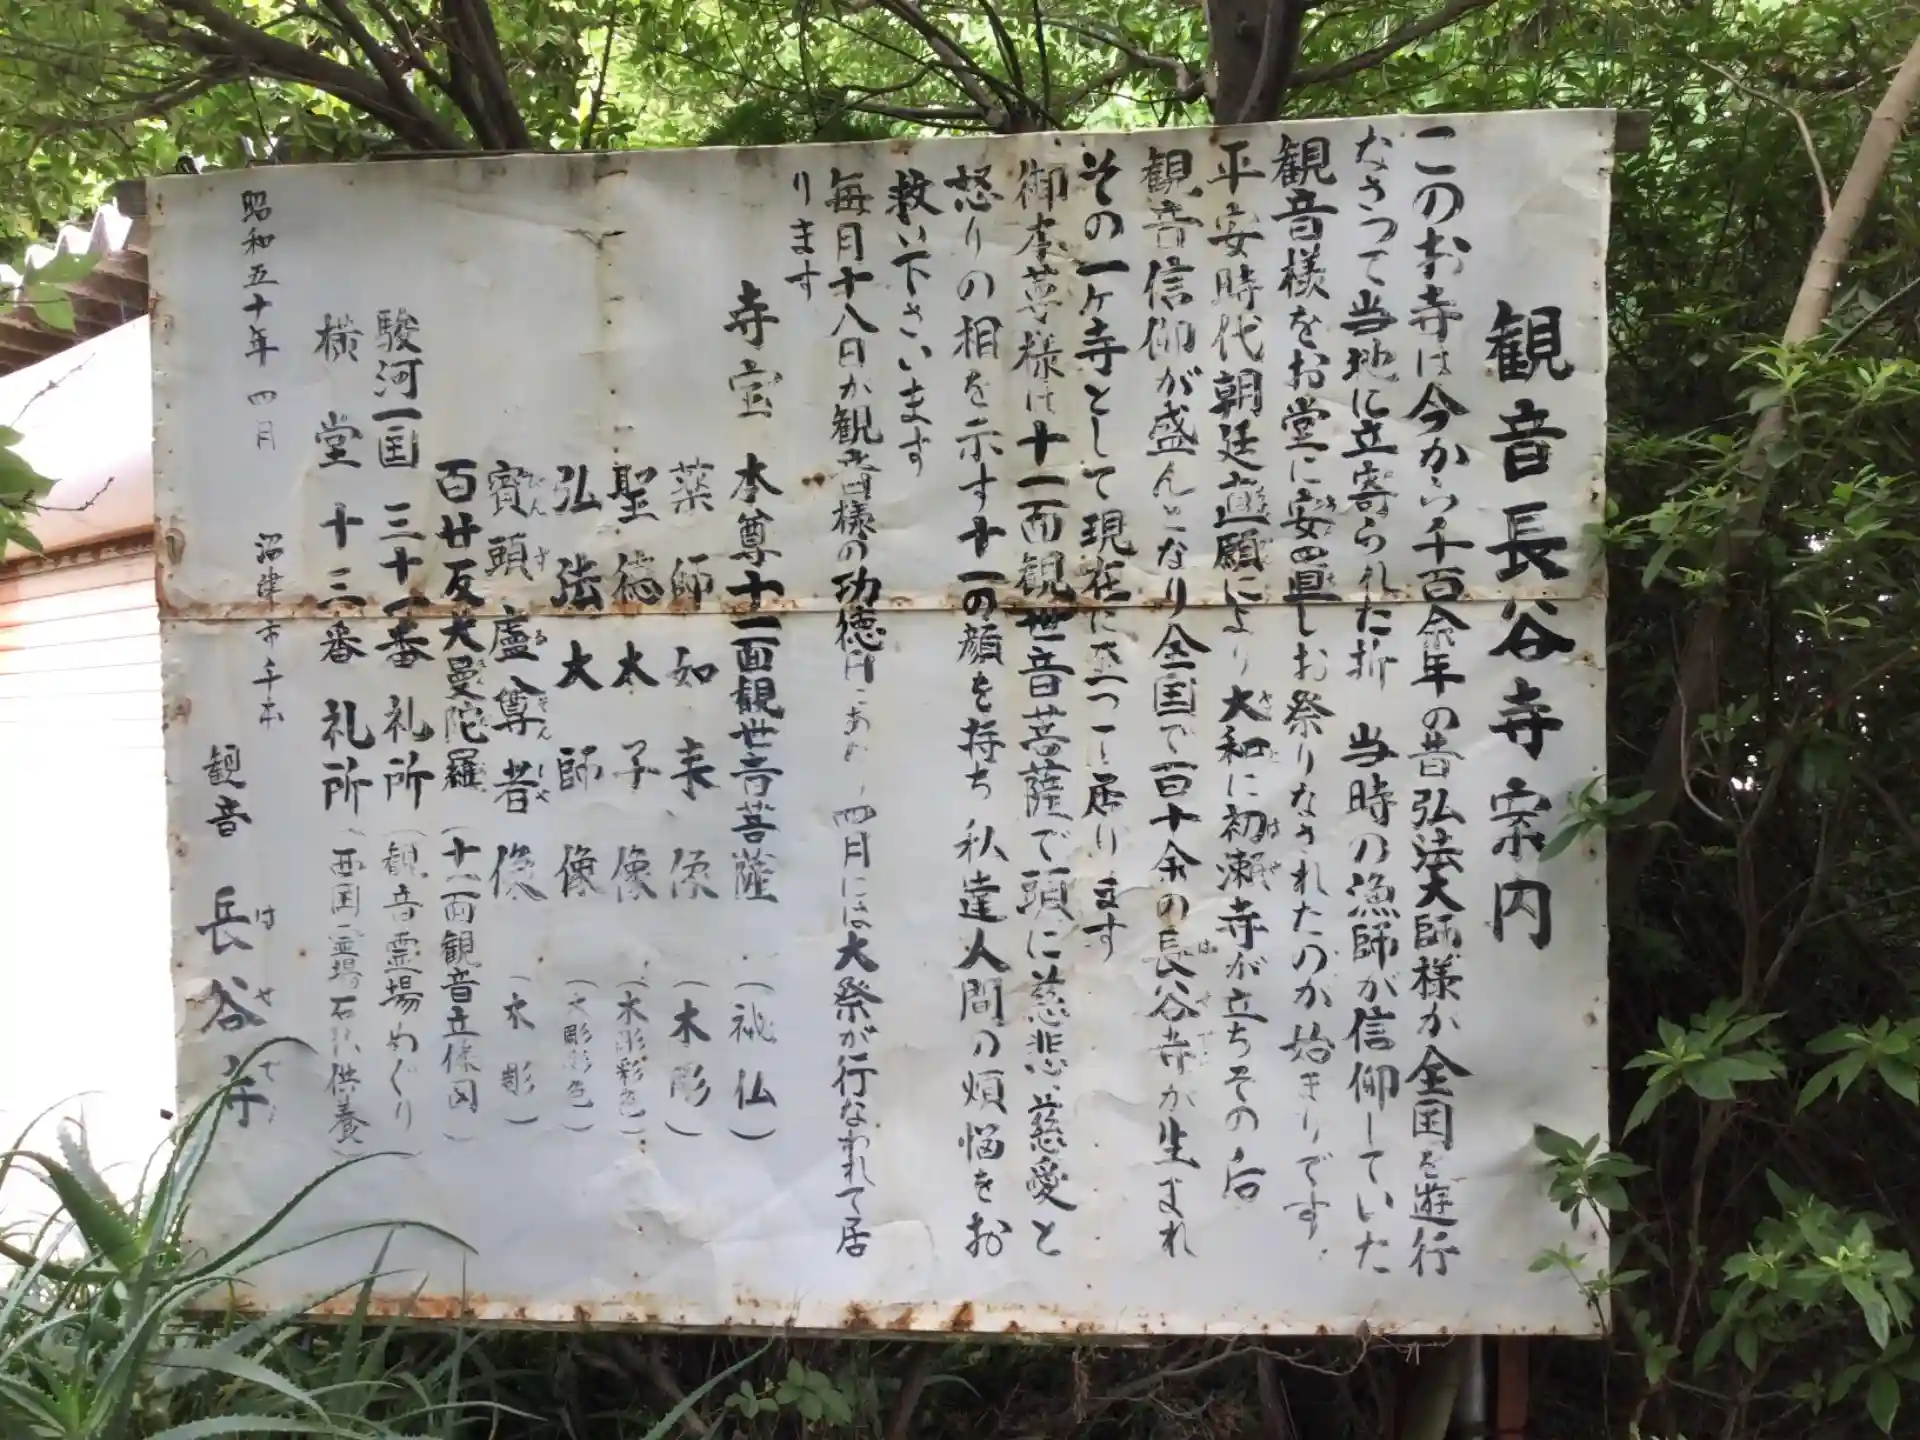 観音長谷寺案内
このお寺は今から千百余年の昔弘法大師様が全国を遊行
なさって当地に立寄られた折 当時の漁師が信仰していた
観音様をお堂に安置しお祭りなされたのが始まりです
平安時代朝廷 願により大和に初瀬寺が立ちその后
観音信仰が盛んとなり全国で二百十余の長谷寺が生まれ
その一ヶ寺として現在に至って居ります
御本尊様は十一面観世音菩薩で頭に慈悲、慈愛と
怒りの相を示す十一の顔を持ち 私達人間の煩悩をお
救い下さいます
毎月十八日が観音様の功徳日にあたり四月には大祭が行なわれて居
ります
寺宝 本尊十一面観世音菩薩 (秘仏)
薬師如来像 (木彫)
聖徳太子像 (木彫彩色)
弘法大師像 (木彫彩色)
賓頭盧尊者像 (木彫)
百廿反大曼陀羅 (十一面観音立体図)
駿河一国 三十一番 礼所 (観音霊場めぐり)
横堂 十三番 礼所 (西国霊場石仏供養)
昭和五十年 四月
沼津市千本
観音 長谷寺